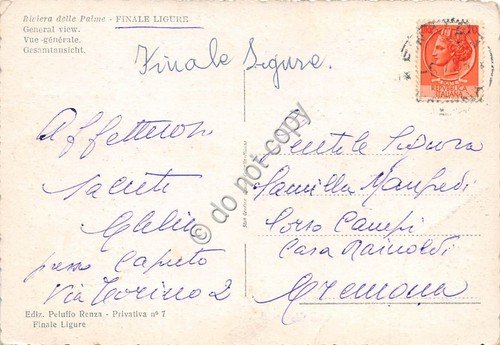 Riviera delle Palme - FINALE LIGURE
General view.
Vue générale.
Gesamtansicht.
Finale Ligure.
Affettuosi
saluti
presso Caputo
Via Torino 2
Gentile Signora
Camilla Manfredi
Corso Campi
Casa Rainoldi
Cremona
Ediz. Peluffo Renza - Privativa n° 7
Finale Ligure
REPUBBLICA
ITALIANA
do not copy